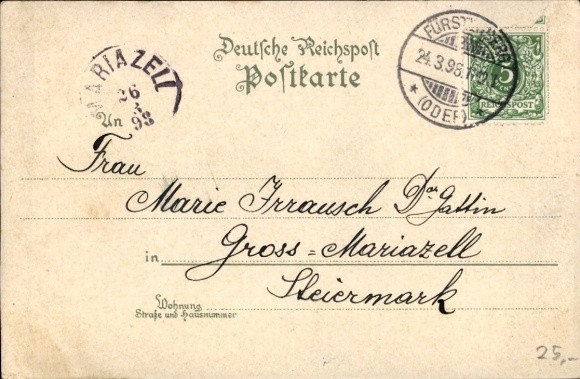 Deutsche Reichspost
Postkarte
MARIAZELL
26
3
98
24.3.98.
(ODER)
5
REICHSPOST
An
Frau
Marie Irrausch Dors Gattin
in Gross=Mariazell
Steiermark
Wohnung
Straße und Hausnummer
25,-